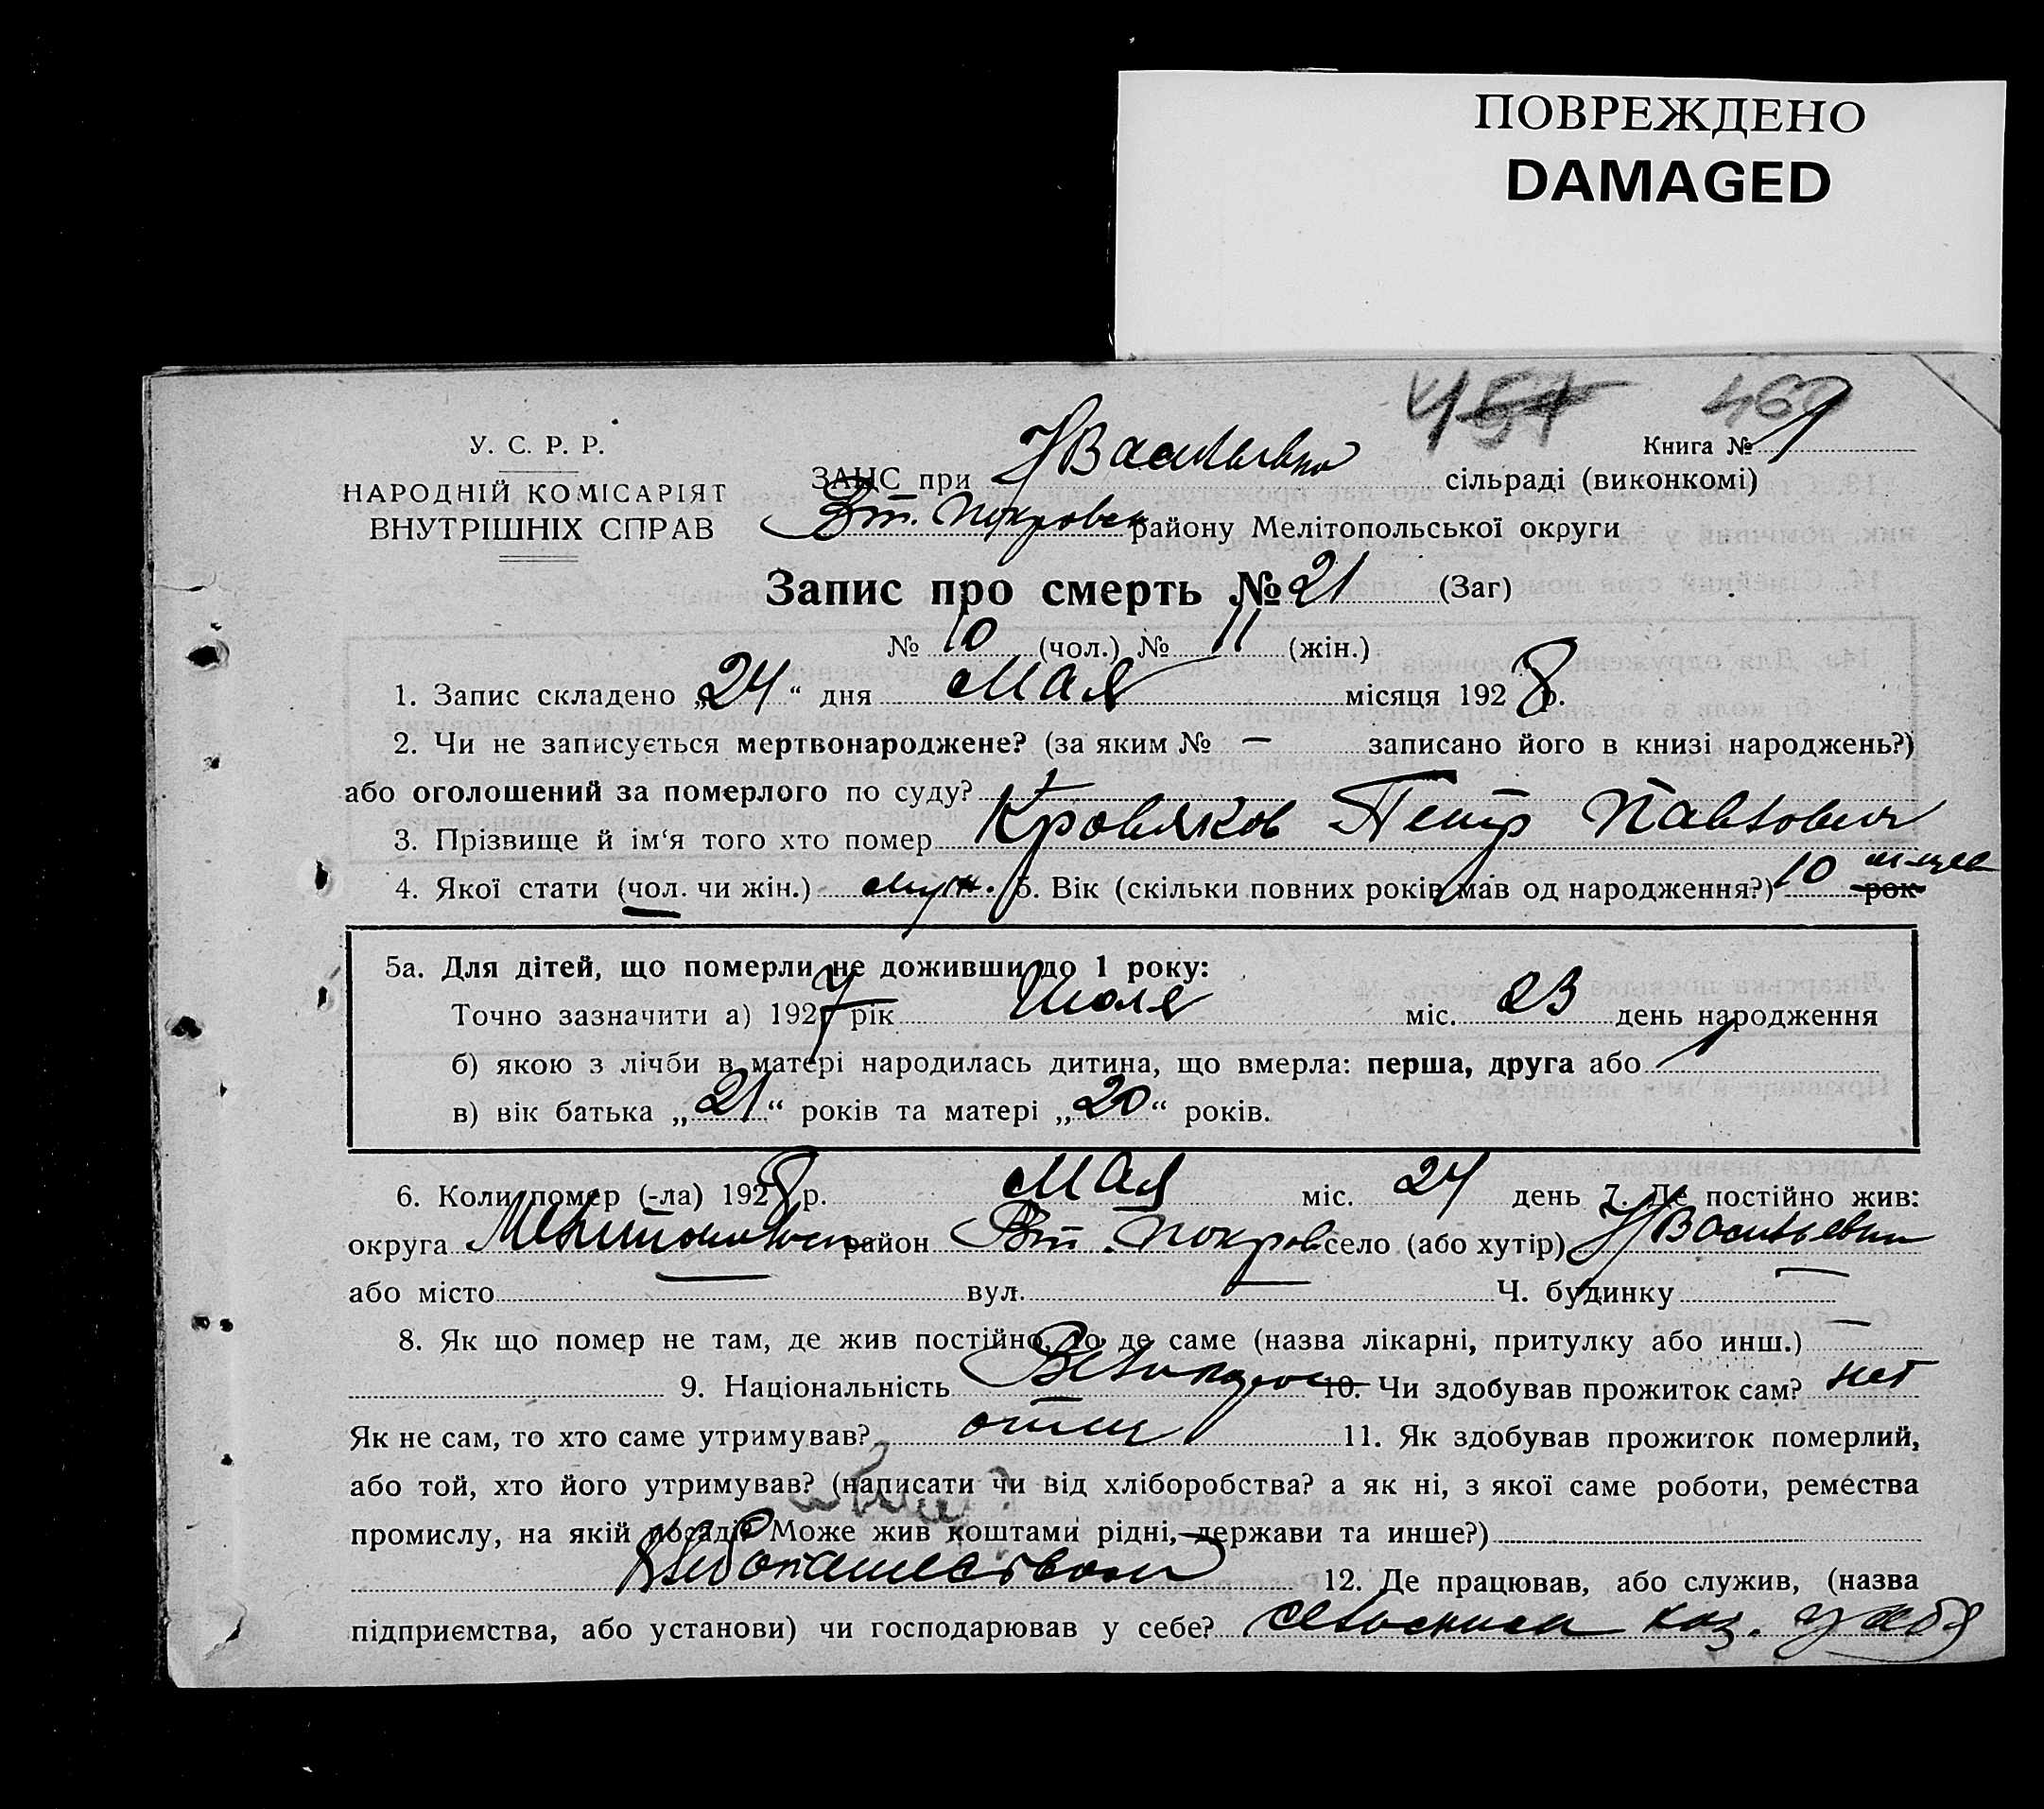 ПОВРЕЖДЕНО
DAMAGED
457 460
У. С. Р. Р.
Книга № 1
НАРОДНІЙ КОМІСАРІЯТ
ВНУТРІШНІХ СПРАВ
ЗАГС при сільраді (виконкомі)
Вт. Покровск району Мелітопольської округи
Запис про смерть № 21 (Заг)
№ 10 (чол.) № 11 (жін.)
1. Запис складено „24“ дня Мая місяця 1928 р.
2. Чи не записується мертвонароджене? (за яким № — записано його в книзі народжень?)
або оголошений за померлого по суду?
3. Прізвище й ім‘я того хто помер Кровяков Петр Павлович
4. Якої стати (чол. чи жін.) муж. 5. Вік (скільки повних років мав од народження?) 10 рок
5а. Для дітей, що померли не доживши до 1 року:
Точно зазначити а) 1927 рік Июля міс. 23 день народження
б) якою з лічби в матері народилась дитина, що вмерла: перша, друга або 1
в) вік батька „21“ років та матері „20“ років.
6. Коли помер (-ла) 1928 р. Мая міс. 24 день 7. Де постійно жив:
округа район Вт. Покров село (або хутір)
або місто — вул. — Ч. будинку —
8. Як що помер не там, де жив постійно, то де саме (назва лікарні, притулку або инш.) —
9. Національність 10. Чи здобував прожиток сам? нет
Як не сам, то хто саме утримував? отец 11. Як здобував прожиток померлий,
або той, хто його утримував? (написати чи від хліборобства? а як ні, з якої саме роботи, ремества
промислу, на якій посаді? Може жив коштами рідні, держави та инше?)
Хлебопашеством 12. Де працював, або служив, (назва
підприємства, або установи) чи господарював у себе? у себя